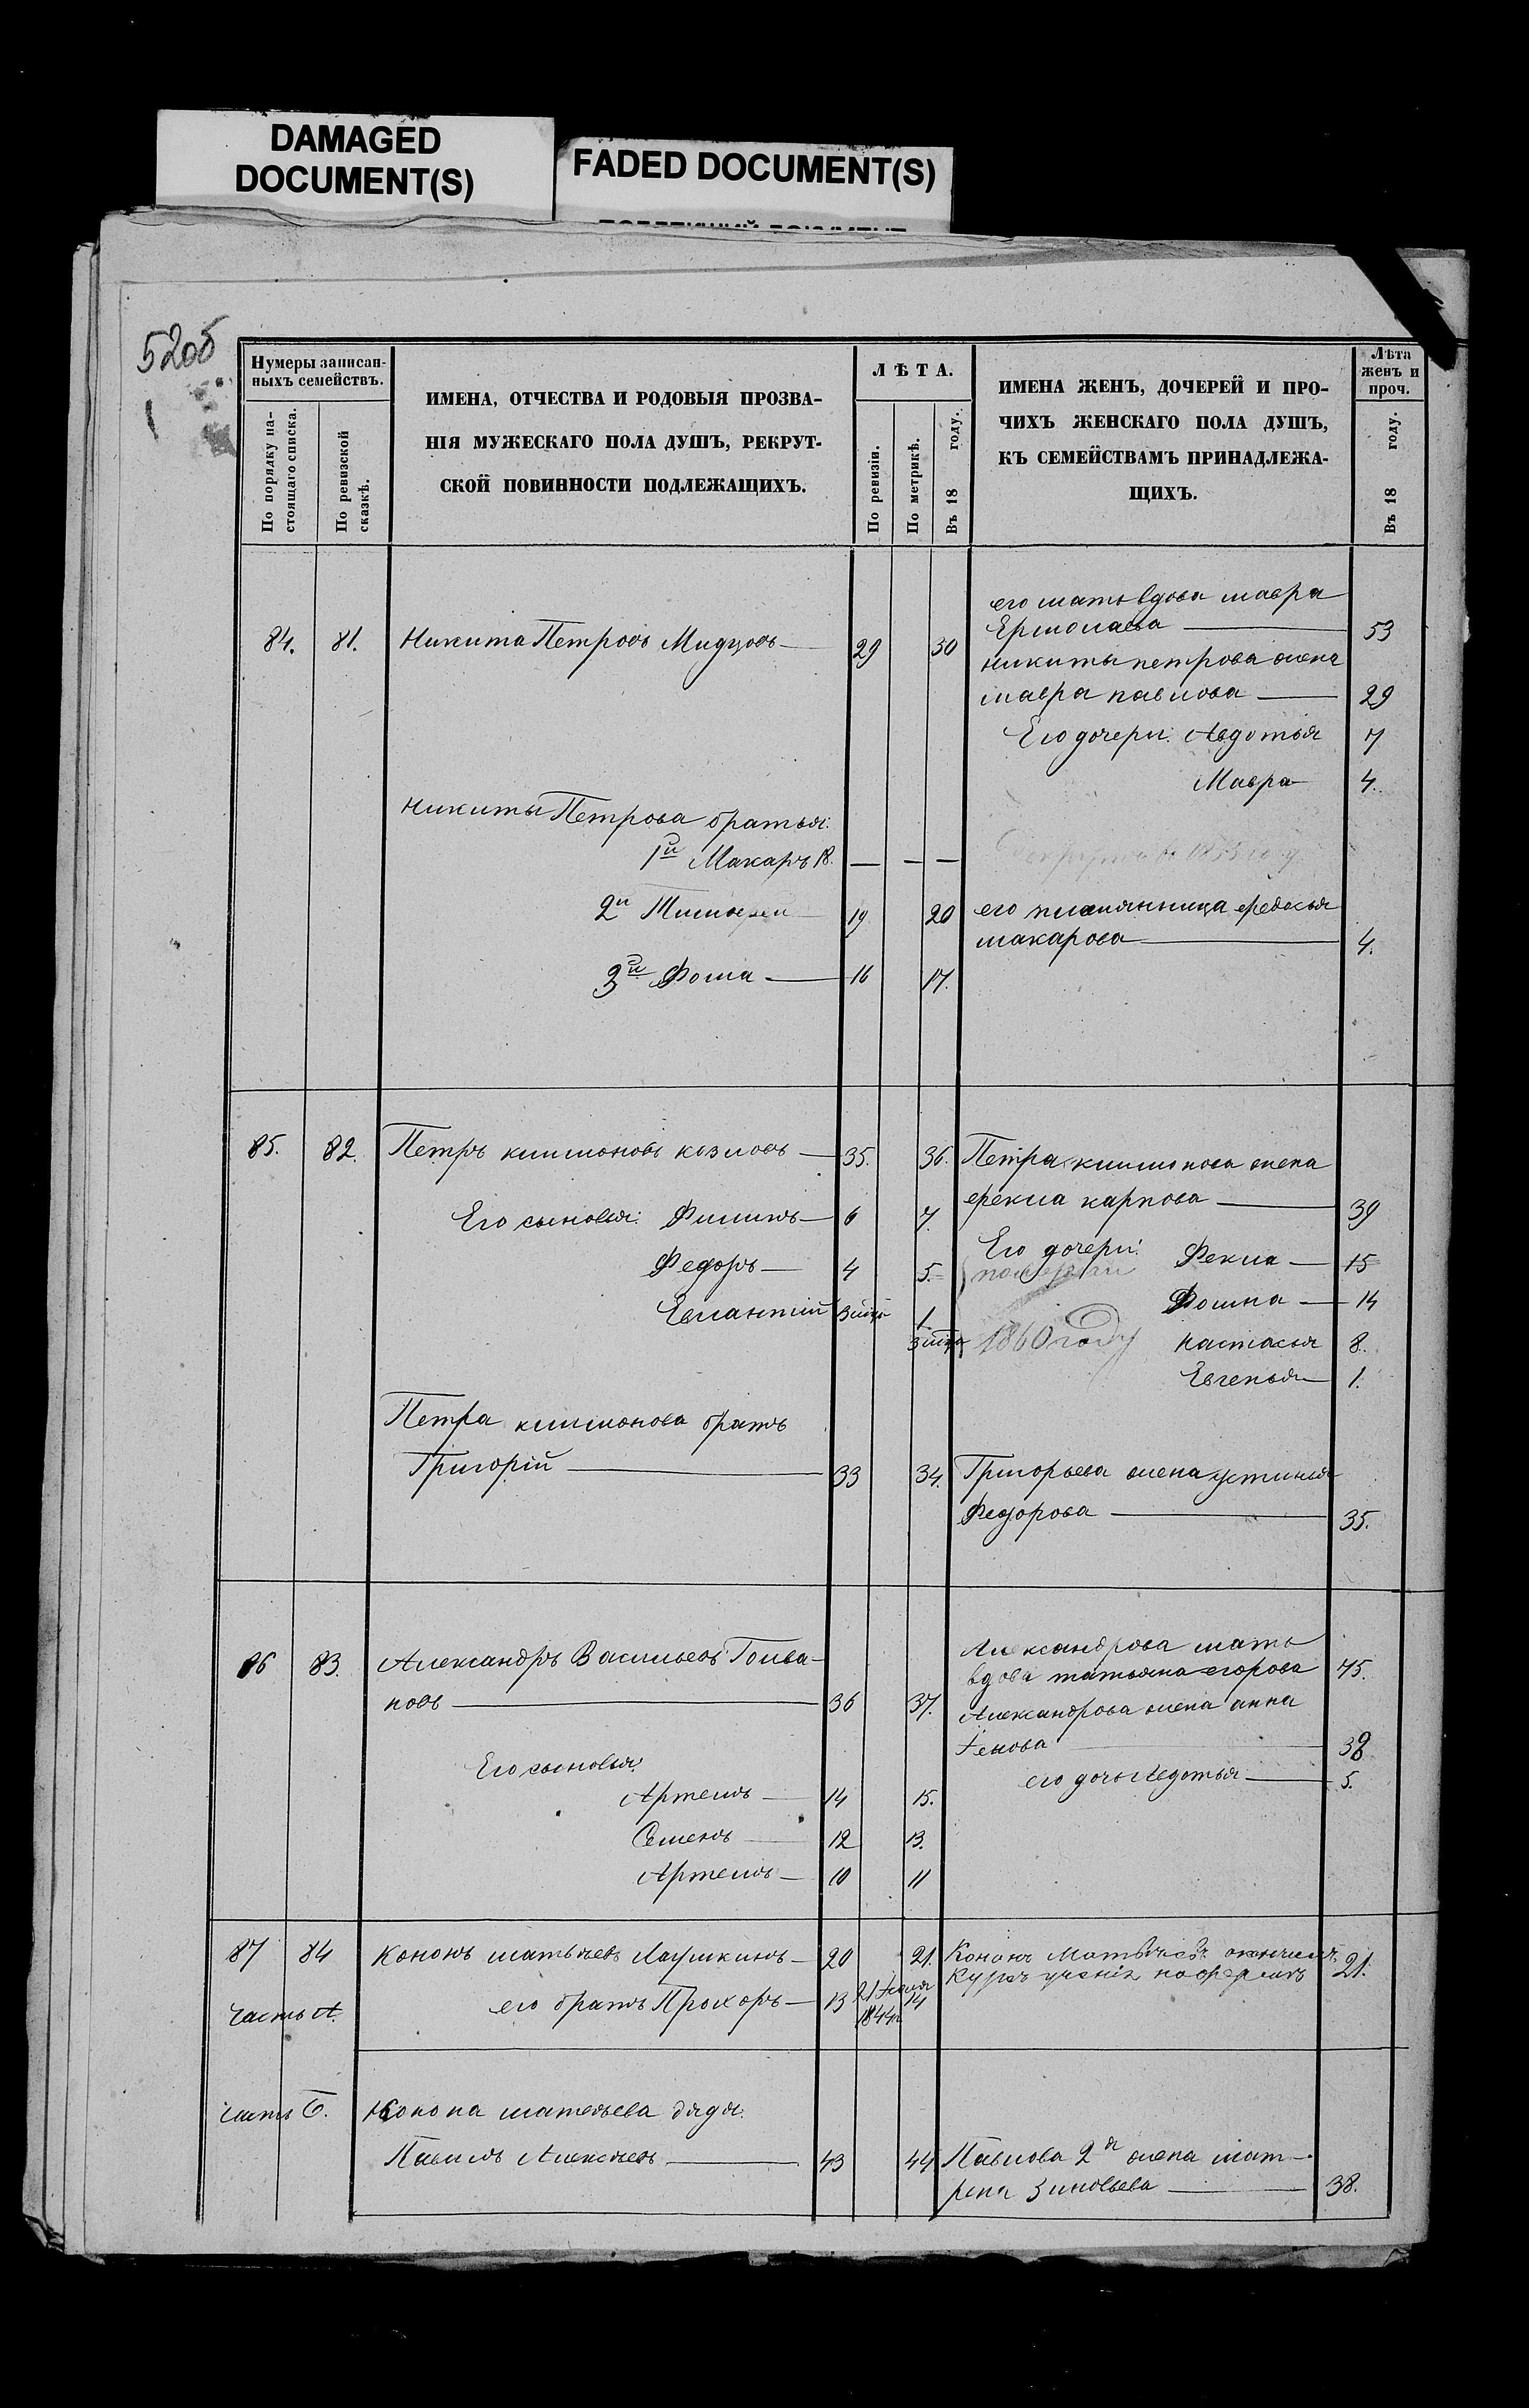 DAMAGED
DOCUMENT(S)
FADED DOCUMENT(S)
520б
Нумеры записан-
ныхъ семействъ.
По порядку на-
стоящаго списка.
По ревизской
сказкѣ.
ИМЕНА, ОТЧЕСТВА И РОДОВЫЯ ПРОЗВА-
НІЯ МУЖЕСКАГО ПОЛА ДУШЪ, РЕКРУТ-
СКОЙ ПОВИННОСТИ ПОДЛЕЖАЩИХЪ.
ЛѢТА.
По ревизіи.
По метрикѣ.
Въ 18 году.
ИМЕНА ЖЕНЪ, ДОЧЕРЕЙ И ПРО-
ЧИХЪ ЖЕНСКАГО ПОЛА ДУШЪ,
КЪ СЕМЕЙСТВАМЪ ПРИНАДЛЕЖА-
ЩИХЪ.
Лѣта
женъ и
проч.
Въ 18 году.
его мать вдова мавра
Ермолаева — 53
84. 81. Никита Петровъ — 29 30
никиты петрова жена
мавра павлова — 29
Его дочери: Авдотья 7
Мавра 4.
Никиты Петрова братья:
1й Макаръ 18. — — —
1855 году
2й Тимофей 19 20 его племянница федосья
макарова — 4.
3й Фома — 16 17.
85. 82. Петръ климоновъ козловъ — 35. 36. Петра климонова жена
фекла карпова — 39
Его сыновья: Филипъ — 6 7.
Его дочери: Фекла — 15
Федоръ — 4 5.
Фомна — 14
Евлантій 1.
1860 году настасья 8.
Евгенья — 1.
Петра климонова братъ
Григорій — 33 34. Григорьева жена устинья
Федорова — 35.
Александрова мать
86 83. Александръ Васильевъ Голва-
вдова татьяна егорова 75.
новъ — 36 37. Александрова жена анна
38
Его сыновья:
его дочь Авдотья — 5.
Артемъ — 14 15.
Семенъ — 12 13.
Артемъ — 10 11
87 84 Кононъ матвѣевъ Лаушкинъ — 20 21. Кононъ Матвѣевъ 21.
Курсъ ученія
его братъ Прохоръ — 13 21 14
1844г
Часть А.
часть Б. Конона матвѣева дядя:
Павилъ Алексѣевъ — 43 44 Павлова 2я жена мат-
рена Зиновьева — 38.